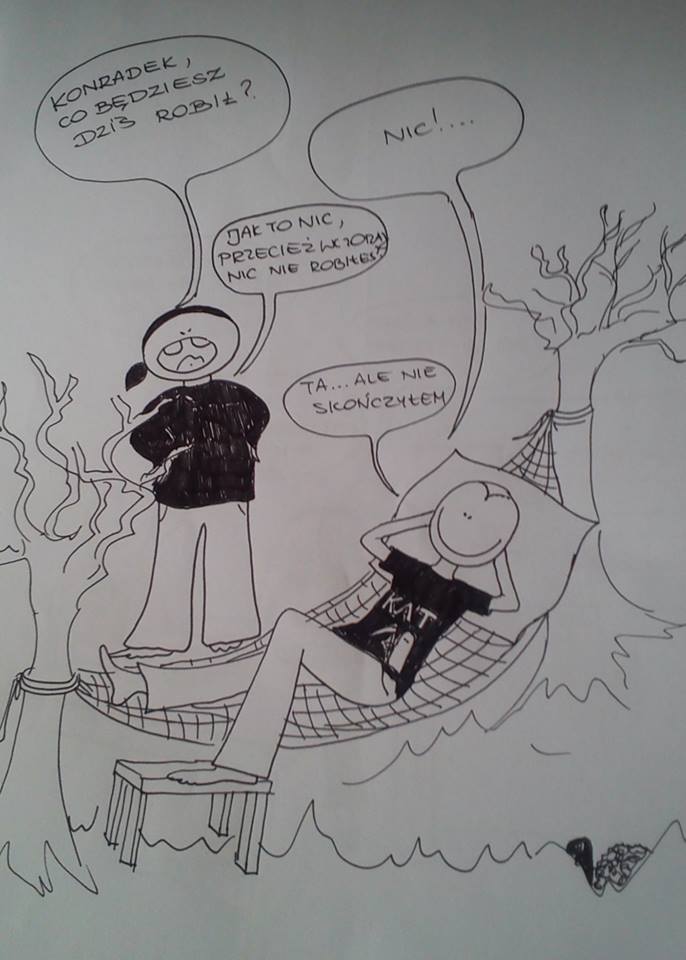 KONRADEK,
CO BĘDZIESZ
DZIŚ ROBIŁ?
NIC!....
JAK TO NIC,
PRZECIEŻ WCZORAJ
NIC NIE ROBIŁEŚ?
TA...ALE NIE
SKOŃCZYŁEM
KAT